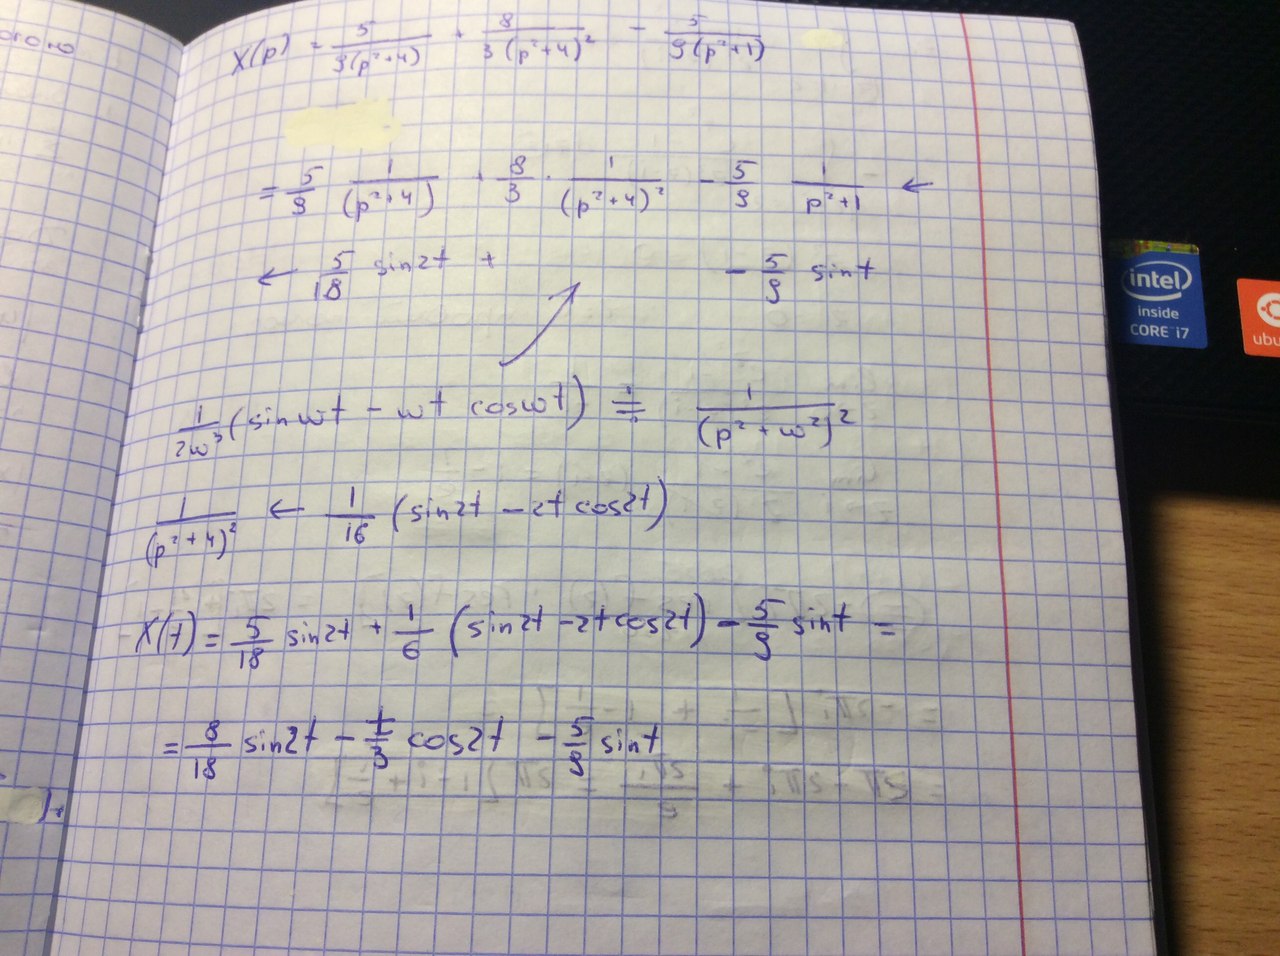 ого
X(p) = 5/9(p²+4) + 8/3(p²+4)² - 5/9(p²+1)
= 5/9 1/(p²+4) + 8/3 · 1/(p²+4)² - 5/9 1/p²+1 ←
← 5/18 sin2t + - 5/9 sint
1/2ω³ (sinωt - ωt cosωt) ≓ 1/(p²+ω²)²
1/(p²+4)² ← 1/16 (sin2t - 2t cos2t)
X(t) = 5/18 sin2t + 1/6 (sin2t - 2tcos2t) - 5/9 sint =
= 8/18 sin2t - t/3 cos2t - 5/9 sint
intel
inside
CORE i7
ubu